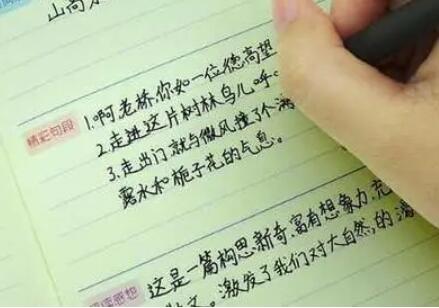 山高
精彩句段
1.啊老桥,你如一位德高望
2.走进这片树林,鸟儿呼
3.走出门,就与微风撞了个满
露水和栀子花的气息。
阅读感想
这是一篇构思新奇,富有想象力,充
散文。激发了我们对大自然的